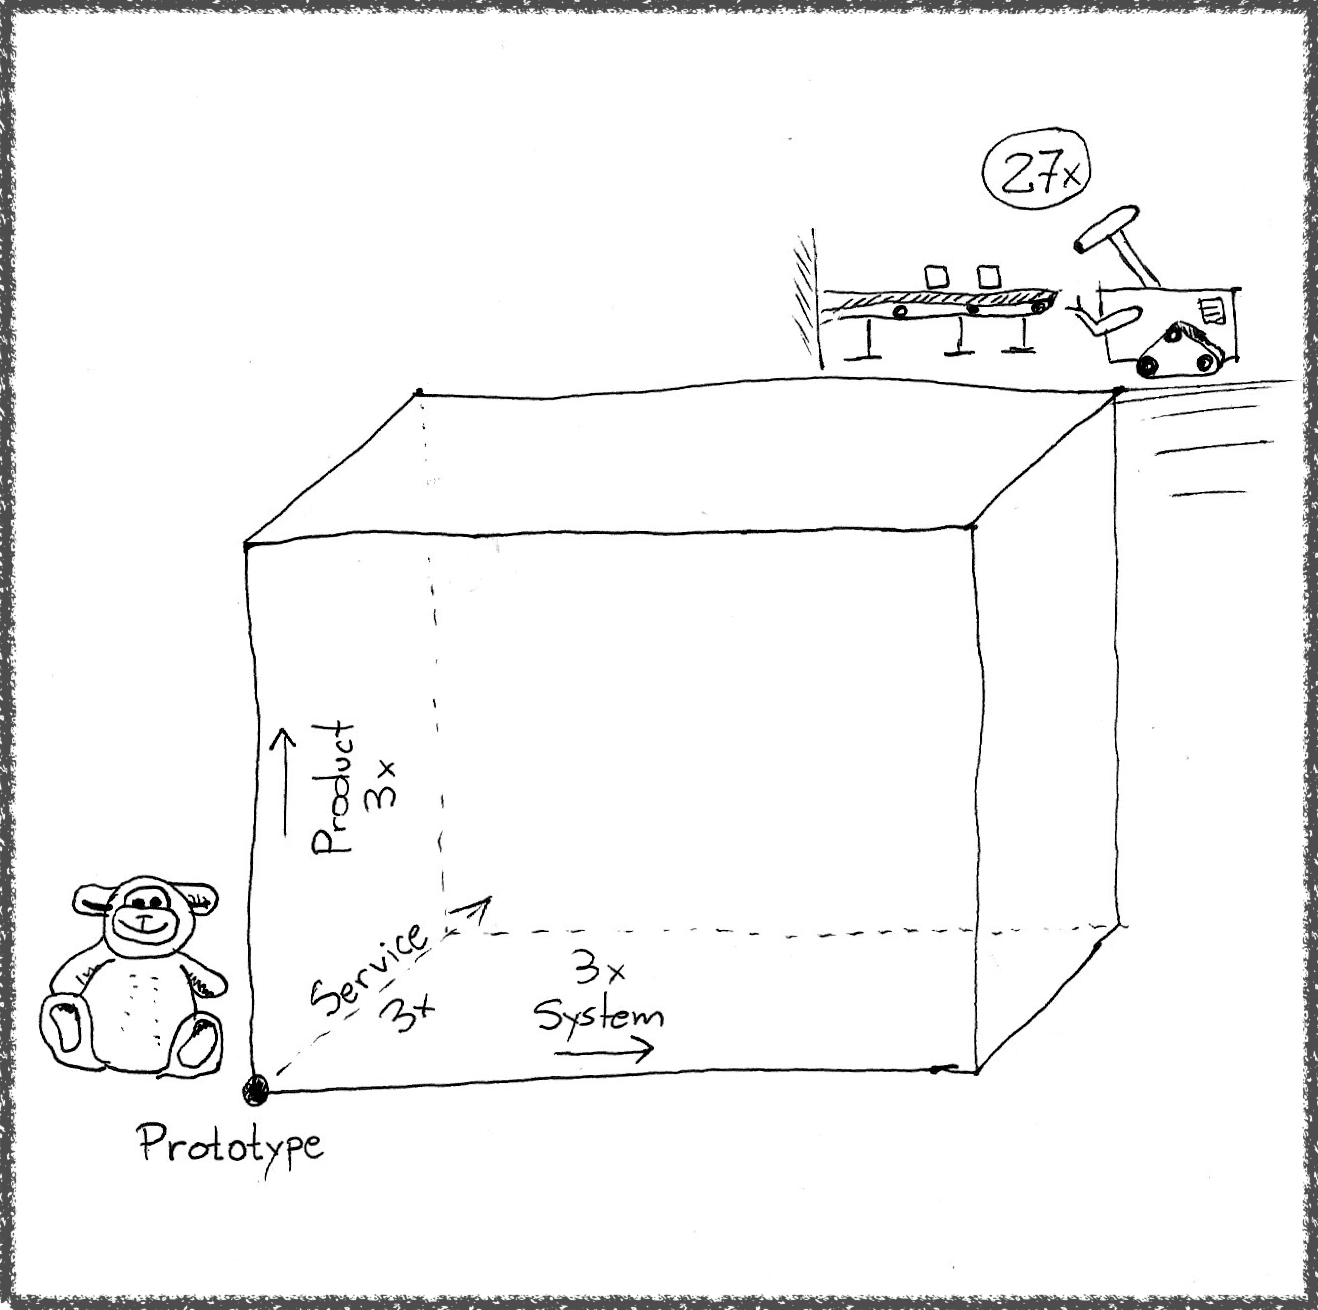 27x
Product
3x
Service
3x
3x
System
Prototype